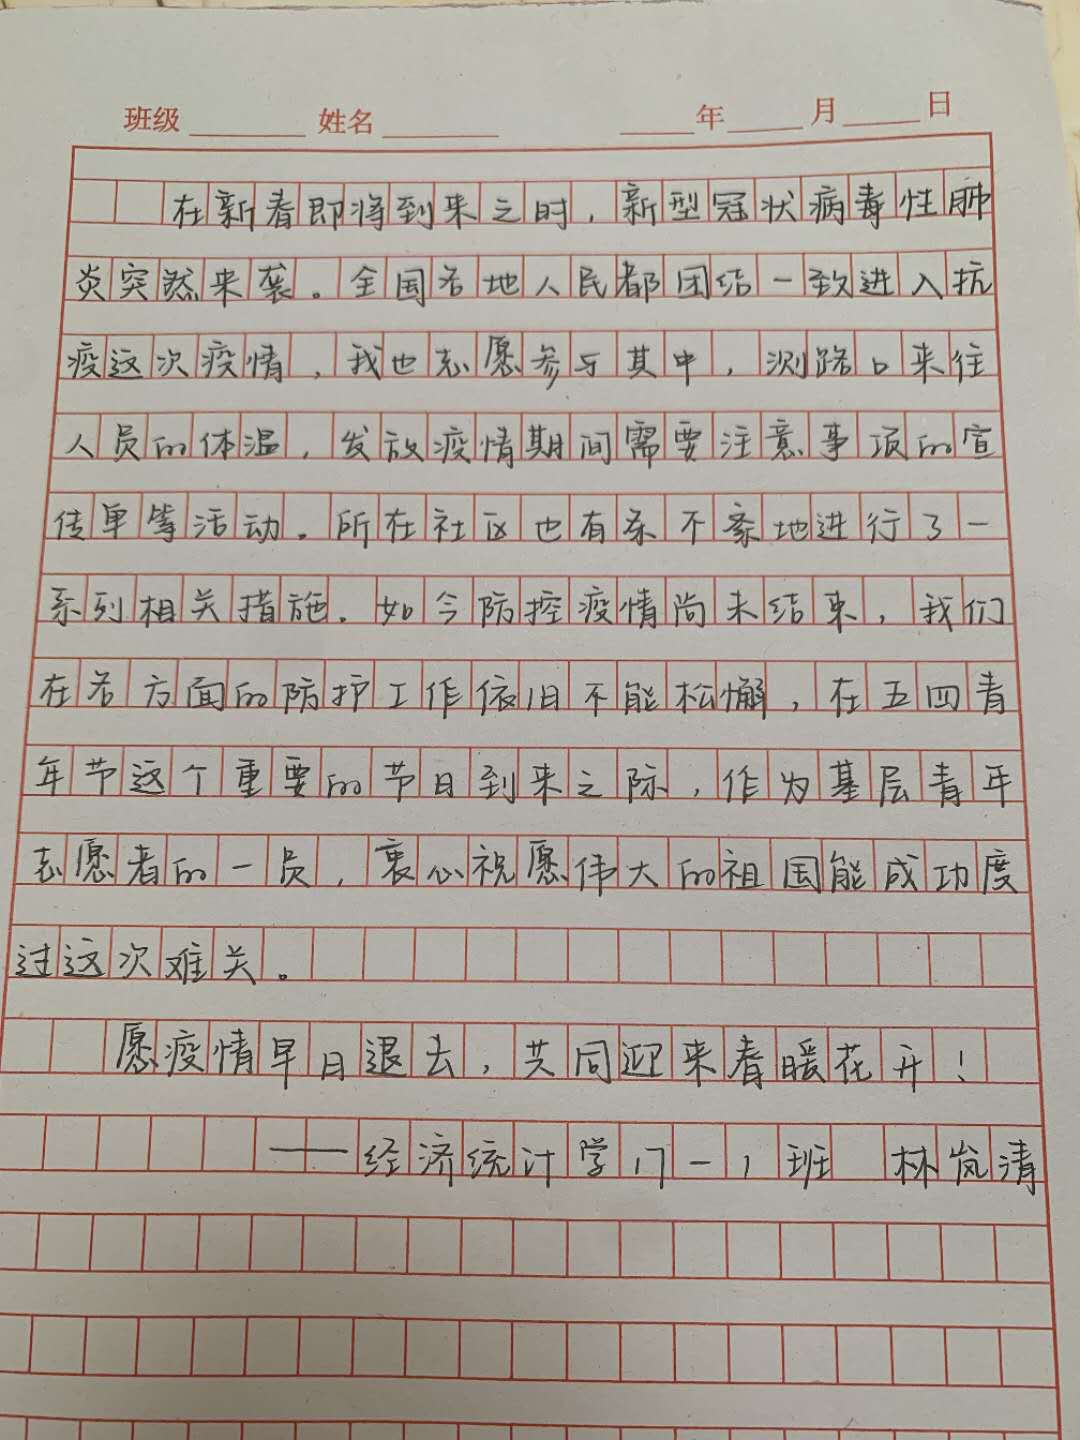 班级 姓名 年 月 日
在新春即将到来之时，新型冠状病毒性肺
炎突然来袭。全国各地人民都团结一致进入抗
疫这次疫情，我也志愿参与其中，测路口来往
人员的体温，发放疫情期间需要注意事项的宣
传单等活动。所在社区也有条不紊地进行了一
系列相关措施。如今防控疫情尚未结束，我们
在各方面的防护工作依旧不能松懈，在五四青
年节这个重要的节日到来之际，作为基层青年
志愿者的一员，衷心祝愿伟大的祖国能成功度
过这次难关。
愿疫情早日退去，共同迎来春暖花开！
——经济统计学17-1班 林岚清